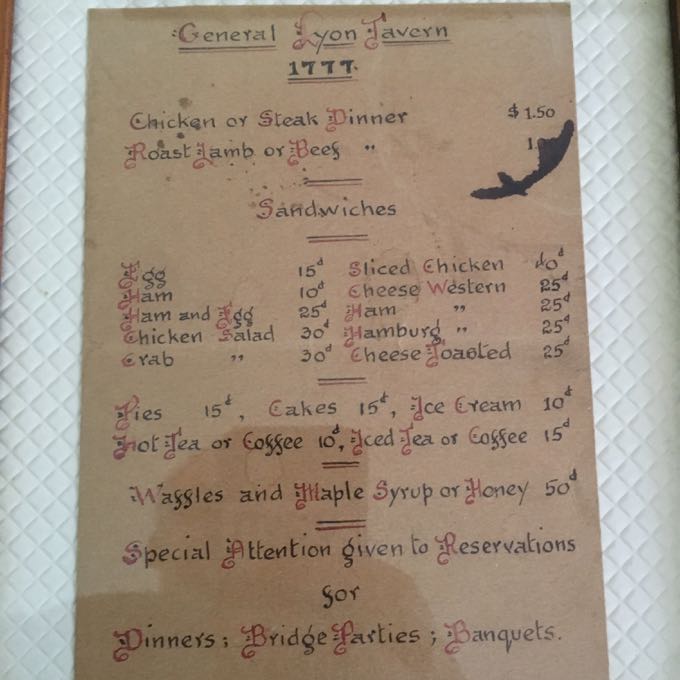 General Lyon Tavern
1777.
Chicken or Steak Dinner $1.50
Roast Lamb or Beef "
Sandwiches
Egg 15d Sliced Chicken 40d
Ham 10d Cheese Western 25d
Ham and Egg 25d Ham " 25d
Chicken Salad 30d Hamburg " 25d
Crab " 30d Cheese Toasted 25d
Pies 15d, Cakes 15d, Ice Cream 10d
Hot Tea or Coffee 10d, Iced Tea or Coffee 15d
Waffles and Maple Syrup or Honey 50d
Special Attention given to Reservations
for
Dinners; Bridge Parties; Banquets.